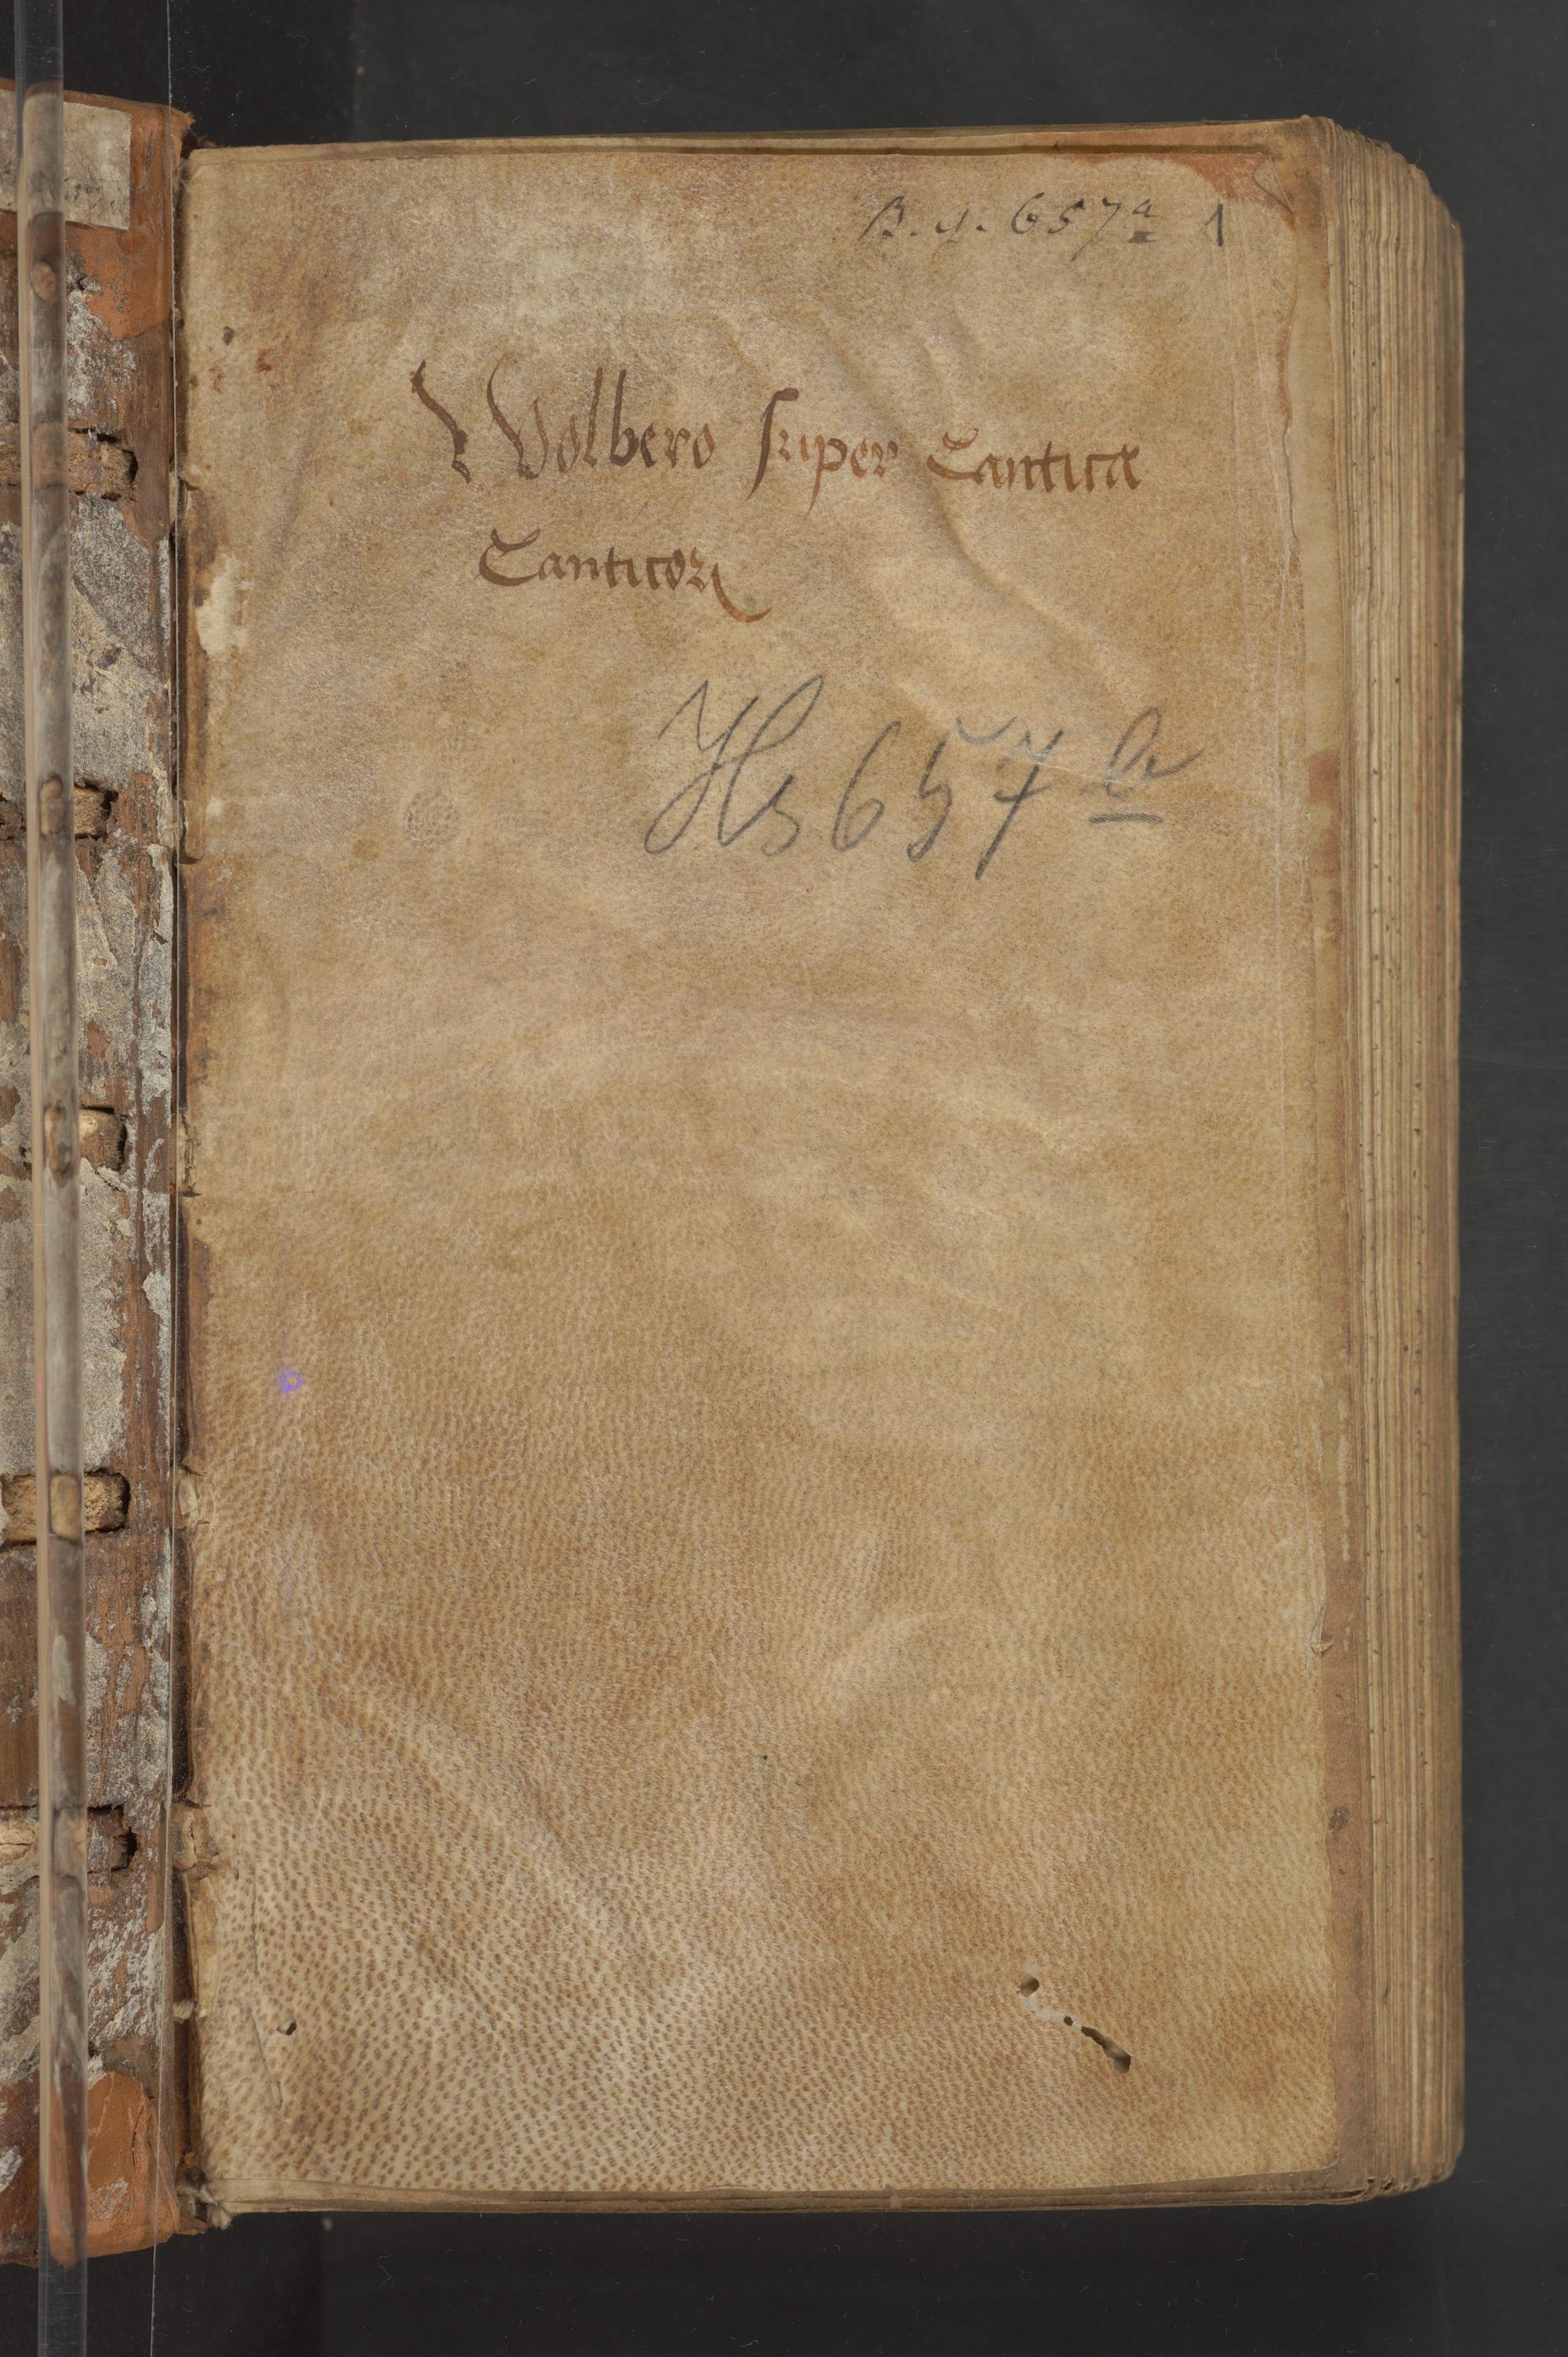 B. g. 657a 1
Wolbero super Cantica
Canticoꝝ
Hs 657 a